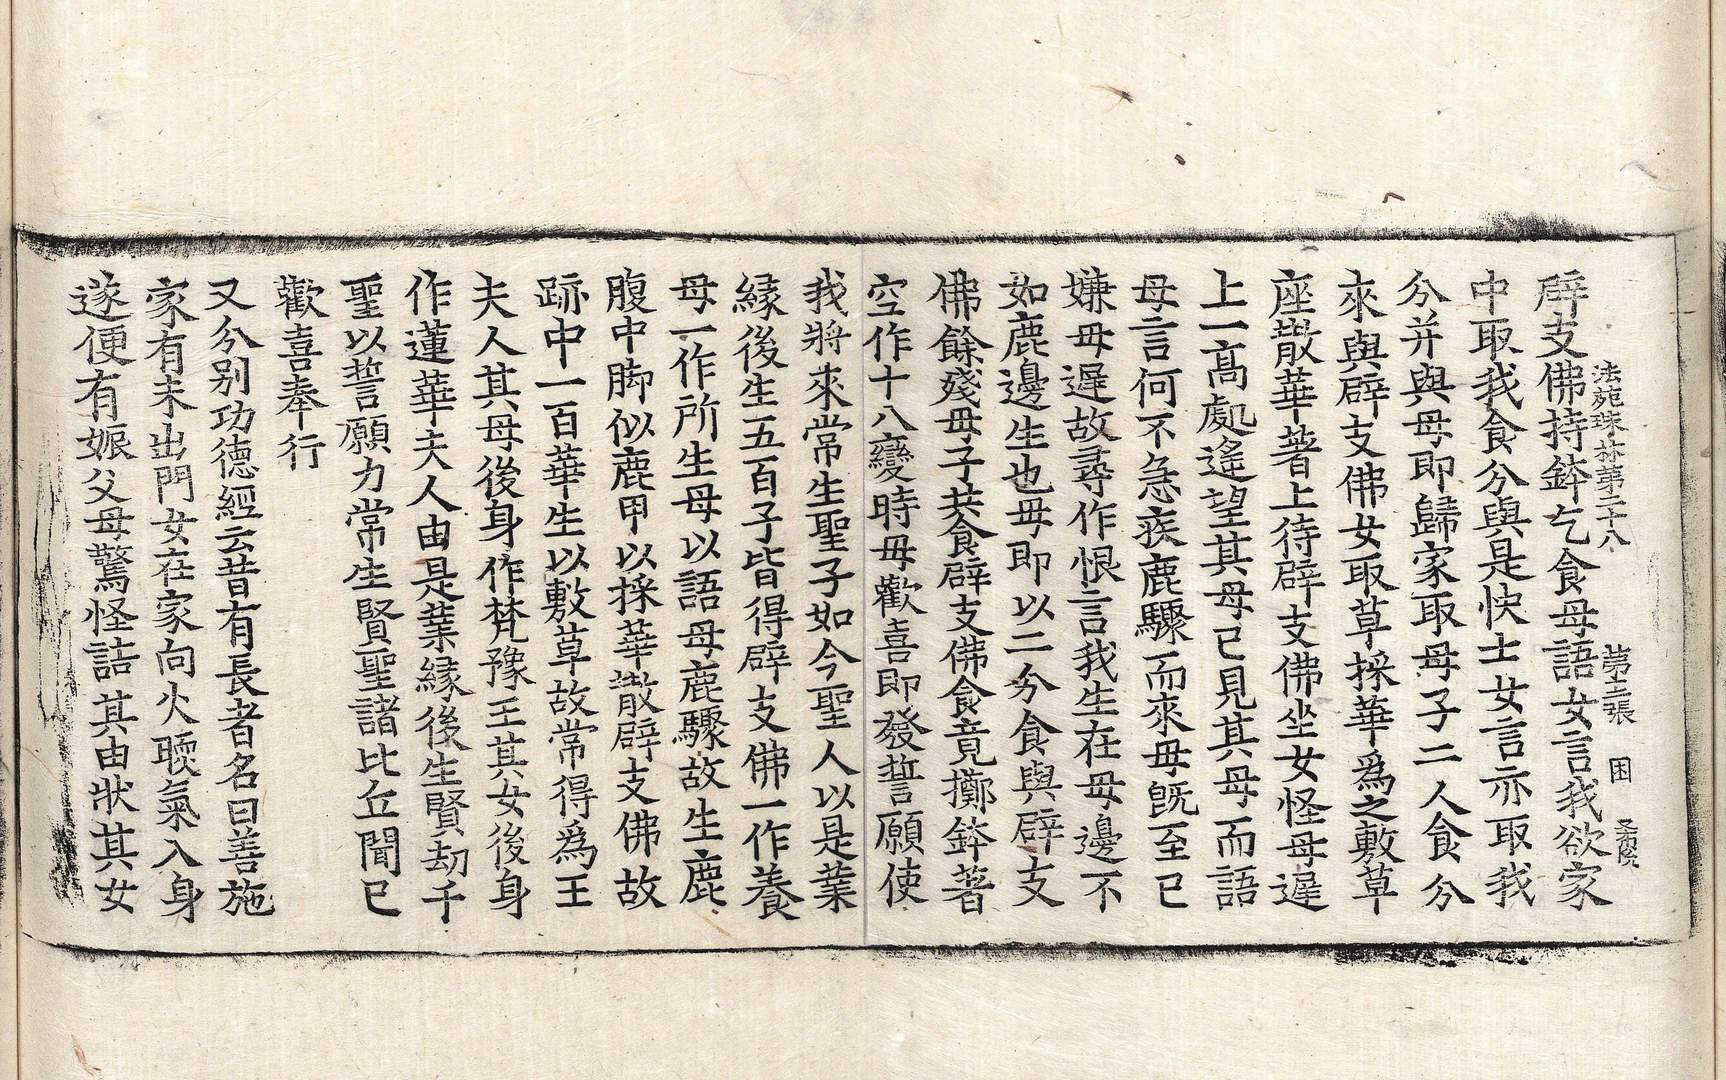 法苑珠林第二十八　第十二張　困
辟支佛持鉢乞食母語女言我欲家
中取我食分與是快士女言亦取我
分并與母即歸家取母子二人食分
來與辟支佛女取草採華爲之敷草
座散華著上待辟支佛坐女怪母遲
上一高處遙望其母已見其母而語
母言何不急疾鹿驟而來母既至已
嫌母遲故尋作恨言我生在母邊不
如鹿邊生也母即以二分食與辟支
佛餘殘母子共食辟支佛食竟擲鉢著
空作十八變時母歡喜即發誓願使
我將來常生聖子如今聖人以是業
緣後生五百子皆得辟支佛一作養
母一作所生母以語母鹿驟故生鹿
腹中脚似鹿甲以採華散辟支佛故
跡中一百華生以敷草故常得爲王
夫人其母後身作梵豫王其女後身
作蓮華夫人由是業緣後生賢劫千
聖以誓願力常生賢聖諸比丘聞已
歡喜奉行
又分別功德經云昔有長者名曰善施
家有未出門女在家向火暖氣入身
遂便有娠父母驚怪詰其由狀其女